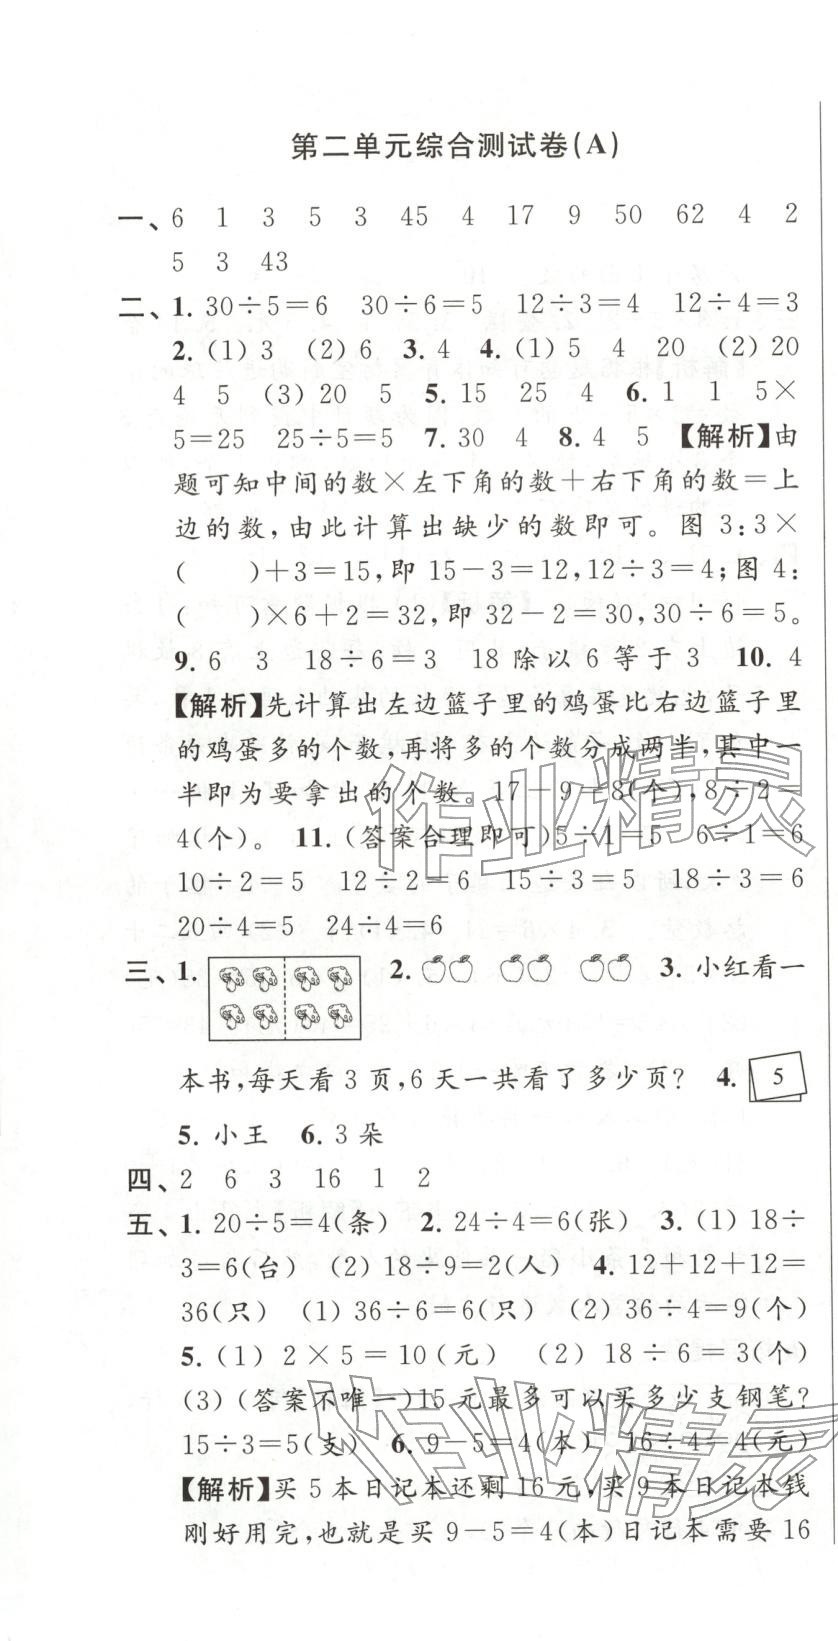 第二单元综合测试卷(A)
一、6 1 3 5 3 45 4 17 9 50 62 4 2
5 3 43
二、1. 30÷5=6 30÷6=5 12÷3=4 12÷4=3
2. (1) 3 (2) 6 3. 4 4. (1) 5 4 20 (2) 20
4 5 (3) 20 5 5. 15 25 4 6. 1 1 5×
5=25 25÷5=5 7. 30 4 8. 4 5 【解析】由
题可知中间的数×左下角的数+右下角的数=上
边的数,由此计算出缺少的数即可。图 3:3×
( )+3=15,即 15-3=12,12÷3=4;图 4:
( )×6+2=32,即 32-2=30,30÷6=5。
9. 6 3 18÷6=3 18 除以 6 等于 3 10. 4
【解析】先计算出左边篮子里的鸡蛋比右边篮子里
的鸡蛋多的个数,再将多的个数分成两半,其中一
半即为要拿出的个数。17-9=8(个),8÷2=
4(个)。 11. (答案合理即可)5÷1=5 6÷1=6
10÷2=5 12÷2=6 15÷3=5 18÷3=6
20÷4=5 24÷4=6
三、1. 2. 3. 小红看一
本书,每天看 3 页,6 天一共看了多少页? 4. 5
5. 小王 6. 3 朵
四、2 6 3 16 1 2
五、1. 20÷5=4(条) 2. 24÷4=6(张) 3. (1) 18÷
3=6(台) (2) 18÷9=2(人) 4. 12+12+12=
36(只) (1) 36÷6=6(只) (2) 36÷4=9(个)
5. (1) 2×5=10(元) (2) 18÷6=3(个)
(3) (答案不唯一)15 元最多可以买多少支钢笔?
15÷3=5(支) 6. 9-5=4(本) 16÷4=4(元)
【解析】买 5 本日记本还剩 16 元,买 9 本日记本钱
刚好用完,也就是买 9-5=4(本)日记本需要 16
作业精灵
作业精灵